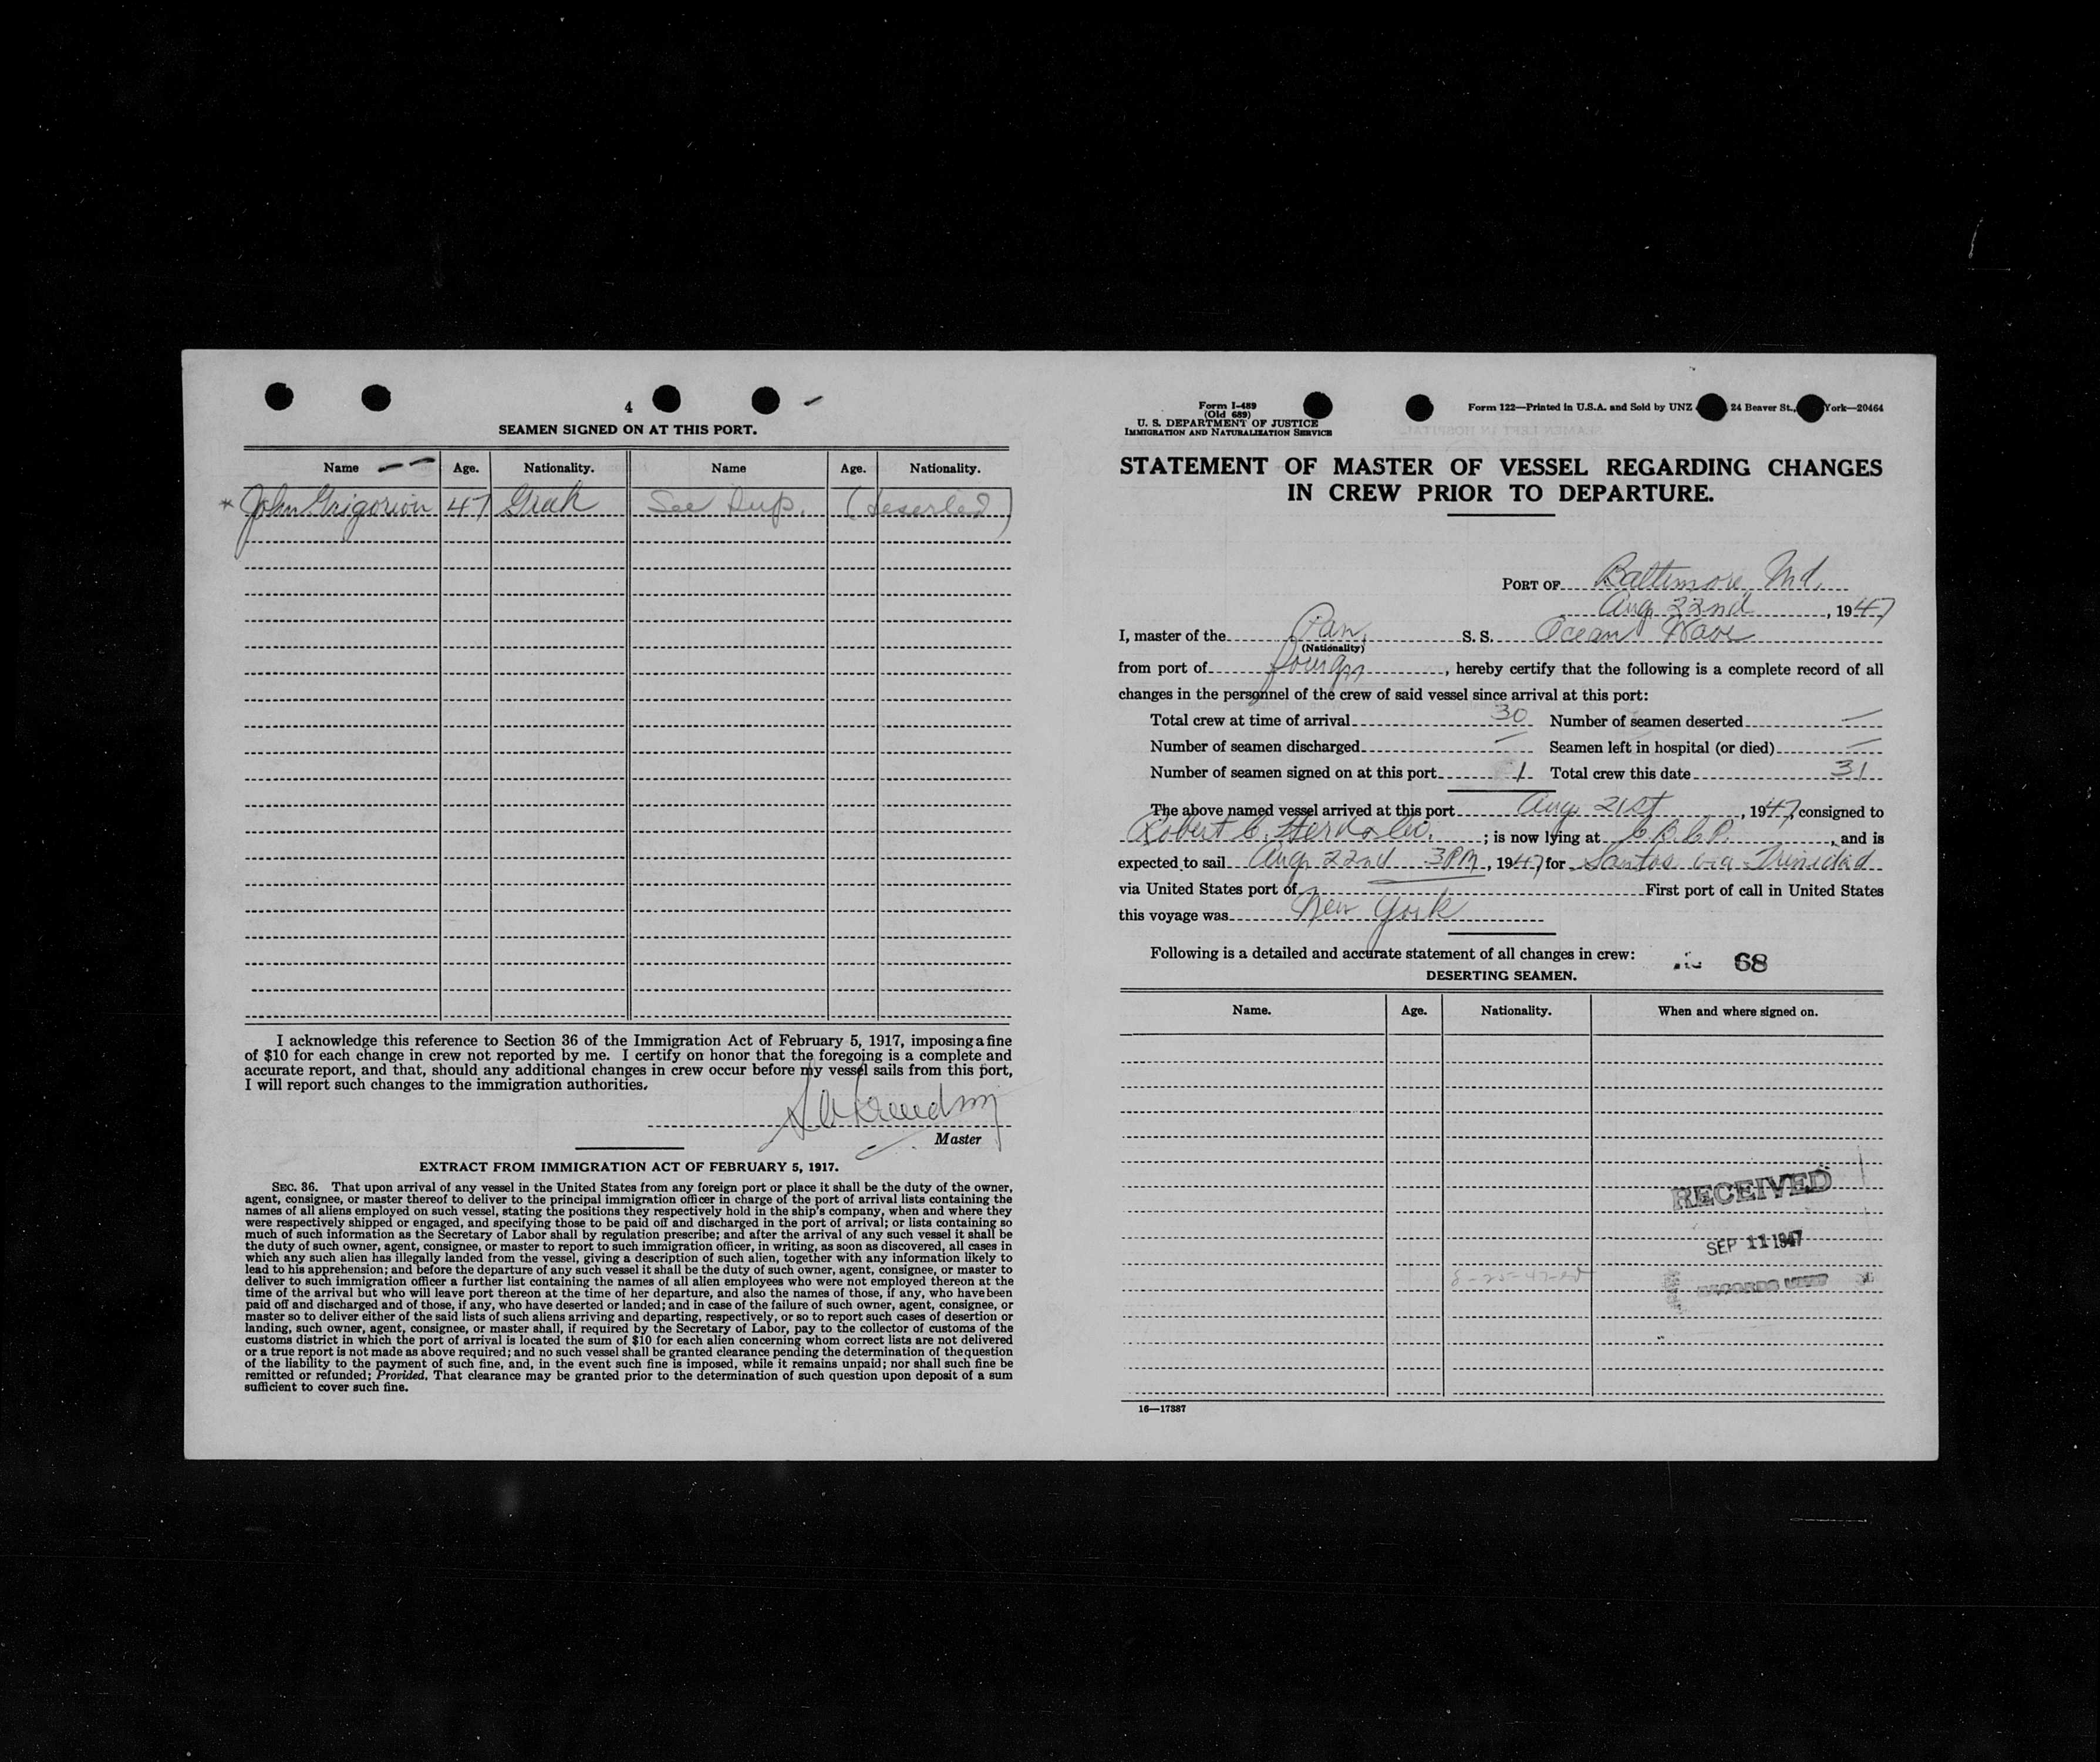 4
SEAMEN SIGNED ON AT THIS PORT.
Name Age. Nationality. Name Age. Nationality.
* John Grigoriou 47 Greek See Dup. (deserted)
I acknowledge this reference to Section 36 of the Immigration Act of February 5, 1917, imposing a fine
of $10 for each change in crew not reported by me. I certify on honor that the foregoing is a complete and
accurate report, and that, should any additional changes in crew occur before my vessel sails from this port,
I will report such changes to the immigration authorities.
Master
EXTRACT FROM IMMIGRATION ACT OF FEBRUARY 5, 1917.
SEC. 36. That upon arrival of any vessel in the United States from any foreign port or place it shall be the duty of the owner,
agent, consignee, or master thereof to deliver to the principal immigration officer in charge of the port of arrival lists containing the
names of all aliens employed on such vessel, stating the positions they respectively hold in the ship's company, when and where they
were respectively shipped or engaged, and specifying those to be paid off and discharged in the port of arrival; or lists containing so
much of such information as the Secretary of Labor shall by regulation prescribe; and after the arrival of any such vessel it shall be
the duty of such owner, agent, consignee, or master to report to such immigration officer, in writing, as soon as discovered, all cases in
which any such alien has illegally landed from the vessel, giving a description of such alien, together with any information likely to
lead to his apprehension; and before the departure of any such vessel it shall be the duty of such owner, agent, consignee, or master to
deliver to such immigration officer a further list containing the names of all alien employees who were not employed thereon at the
time of the arrival but who will leave port thereon at the time of her departure, and also the names of those, if any, who have been
paid off and discharged and of those, if any, who have deserted or landed; and in case of the failure of such owner, agent, consignee, or
master so to deliver either of the said lists of such aliens arriving and departing, respectively, or so to report such cases of desertion or
landing, such owner, agent, consignee, or master shall, if required by the Secretary of Labor, pay to the collector of customs of the
customs district in which the port of arrival is located the sum of $10 for each alien concerning whom correct lists are not delivered
or a true report is not made as above required; and no such vessel shall be granted clearance pending the determination of the question
of the liability to the payment of such fine, and, in the event such fine is imposed, while it remains unpaid; nor shall such fine be
remitted or refunded; Provided, That clearance may be granted prior to the determination of such question upon deposit of a sum
sufficient to cover such fine.
Form I-489
(Old 689)
U. S. DEPARTMENT OF JUSTICE
IMMIGRATION AND NATURALIZATION SERVICE
Form 122—Printed in U.S.A. and Sold by UNZ 24 Beaver St., York—20464
STATEMENT OF MASTER OF VESSEL REGARDING CHANGES
IN CREW PRIOR TO DEPARTURE.
PORT OF Baltimore, Md.
Aug 22nd, 1947
I, master of the Pan. S. S. Ocean Wave
(Nationality)
from port of foreign, hereby certify that the following is a complete record of all
changes in the personnel of the crew of said vessel since arrival at this port:
Total crew at time of arrival 30 Number of seamen deserted —
Number of seamen discharged — Seamen left in hospital (or died) —
Number of seamen signed on at this port 1 Total crew this date 31
The above named vessel arrived at this port Aug 21st, 1947, consigned to
Robert C. Herd & Co.; is now lying at C.B.C.P., and is
expected to sail Aug 22nd 3PM, 1947 for Santos via Trinidad
via United States port of First port of call in United States
this voyage was New York
Following is a detailed and accurate statement of all changes in crew:
68
DESERTING SEAMEN.
Name. Age. Nationality. When and where signed on.
RECEIVED
SEP 11 1947
RECORDS UNIT
16—17387